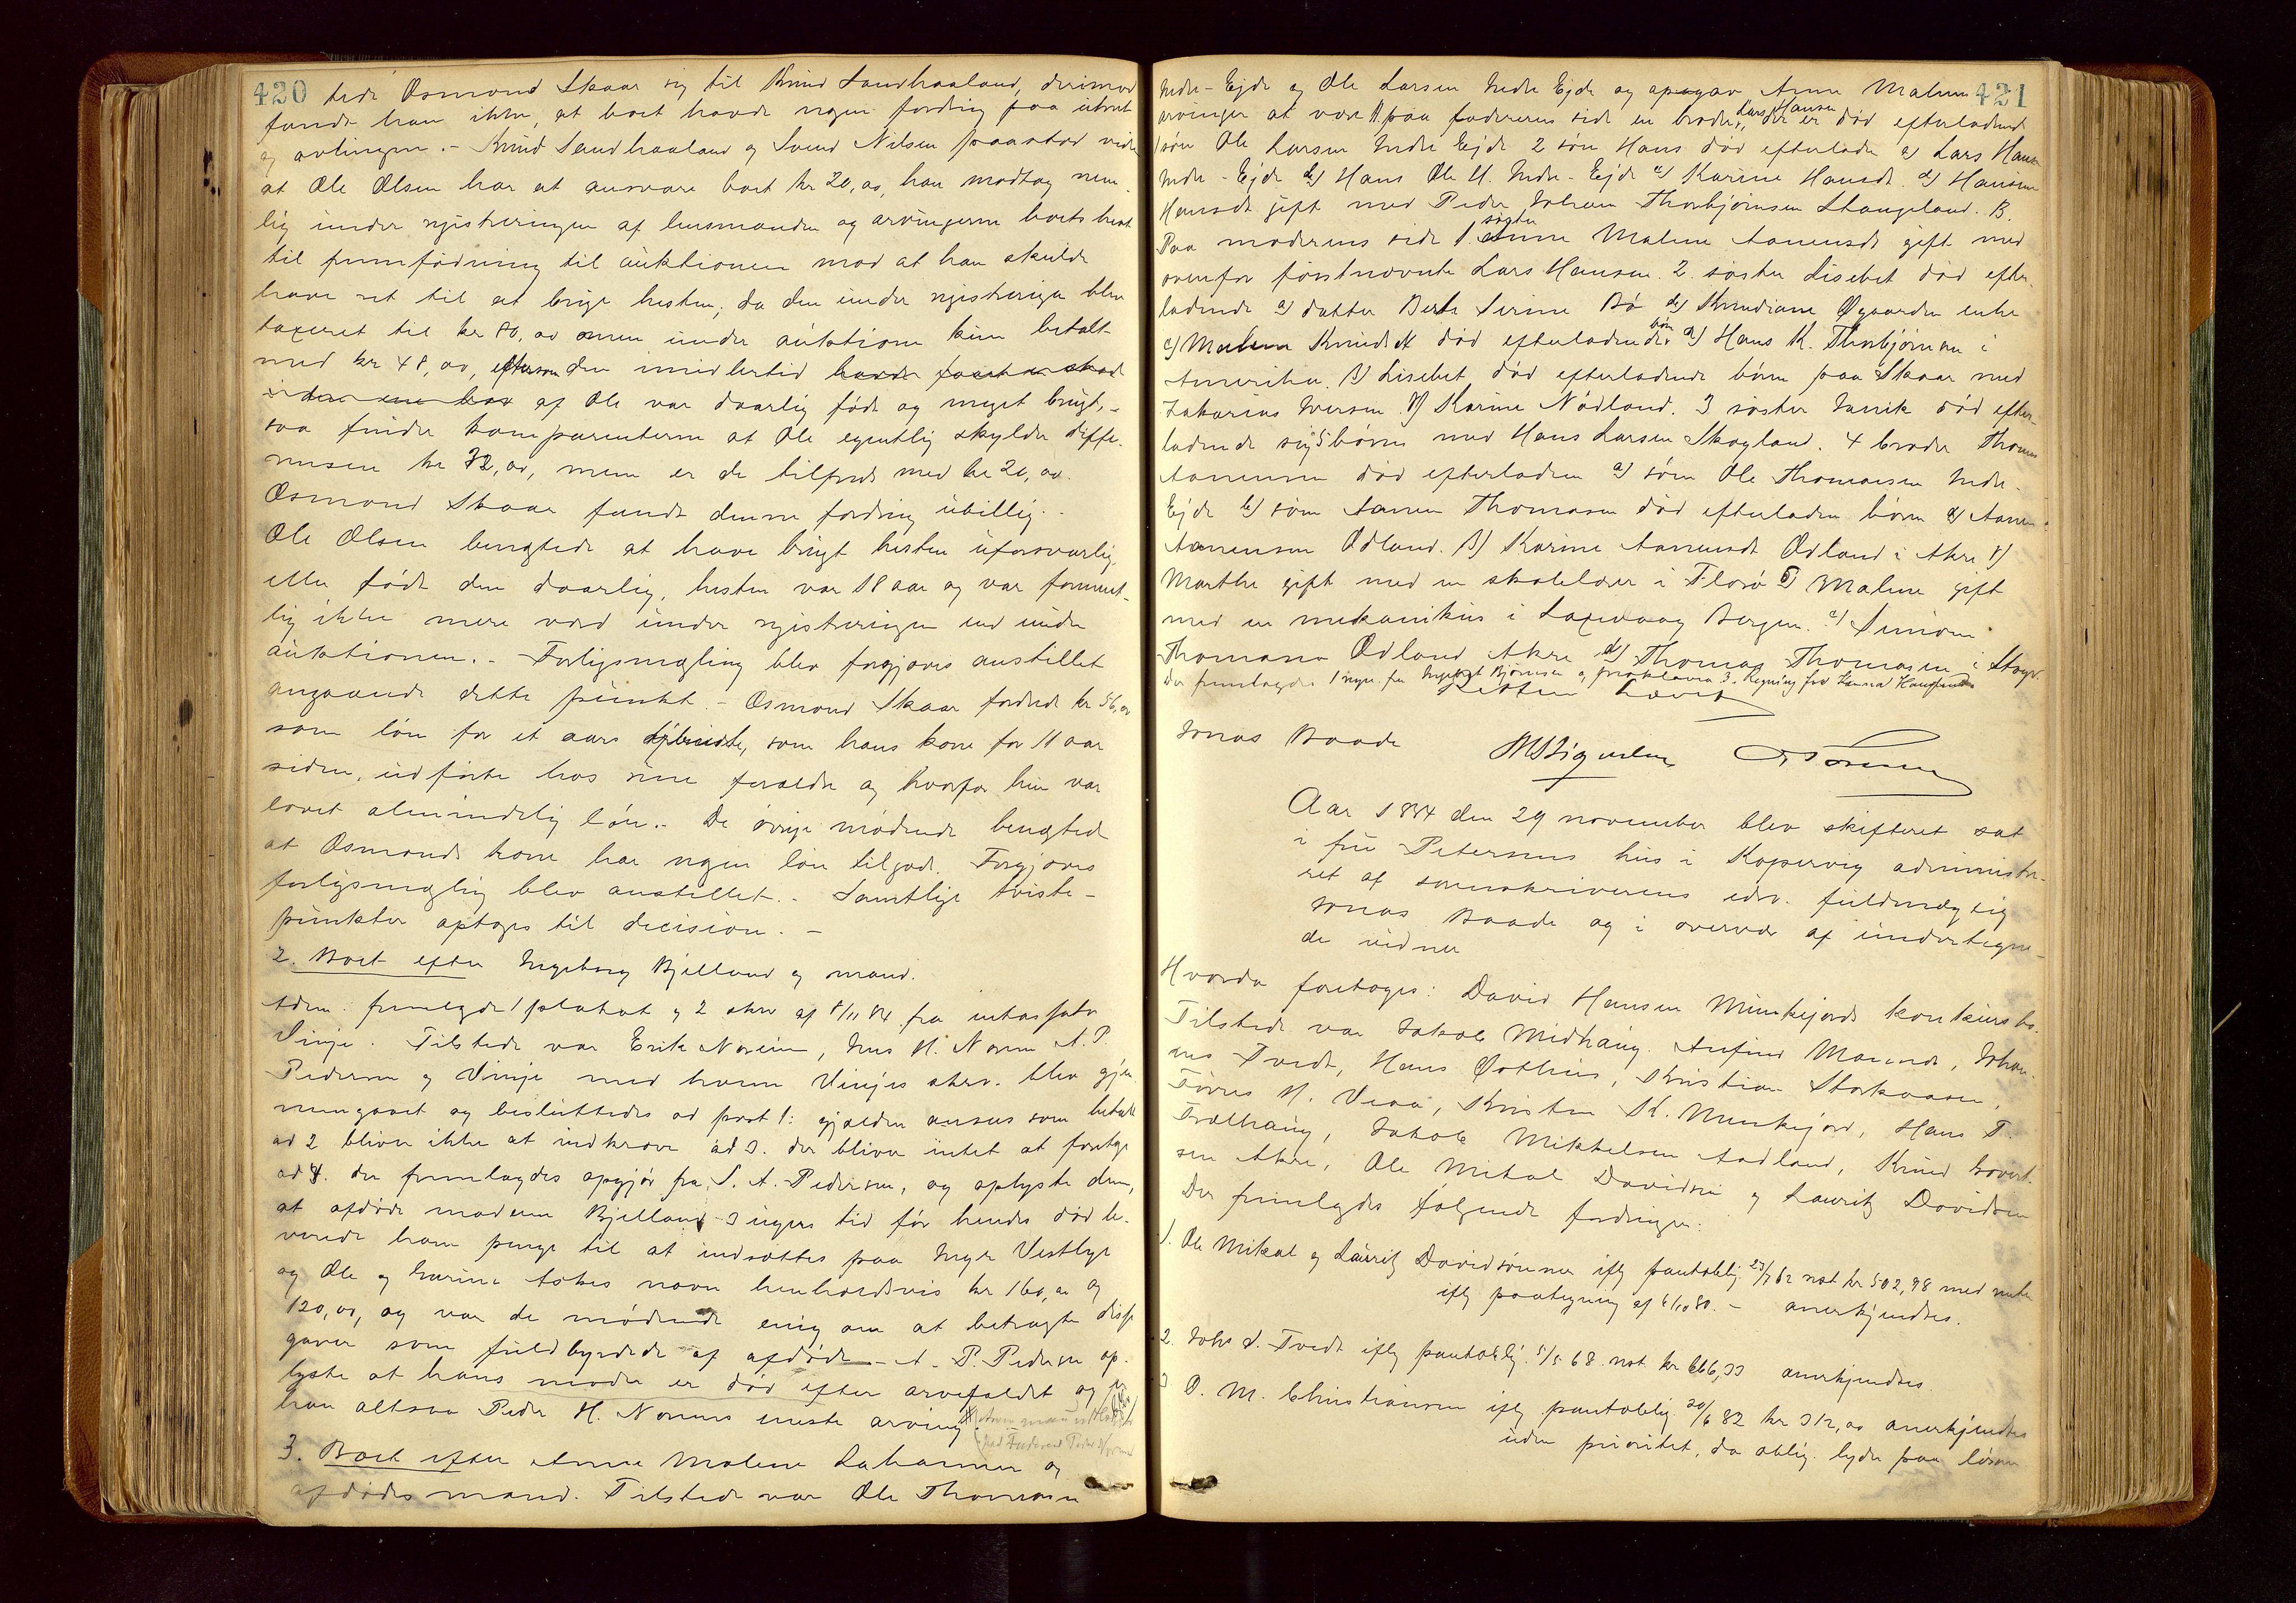 420
tede Osmond Skaar sig til Knud Sandhaaland, derimod
fandt han ikke, at boet havde nogen fordring paa utøiet
og avlingen. - Knud Sandhaaland og Svend Nilsen paastod videre
at Ole Olsen har at ansvare boet kr 20,00, han modtog nem-
lig under registreringen af lensmanden og arvingerne boets hest
til fremfødning til auktionen mod at han skulde
have ret til at bruge hesten; da den under registreringen blev
taxeret til kr 80,00 men under auktionen kun betalt
med kr 48,00, eftersom den imidlertid havde
af Ole var daarlig født og meget brugt, -
saa finder komparenterne at Ole egentlig skylder diffe-
rensen kr 32,00, men er de tilfreds med kr 20,00.
Osmond Skaar fandt denne fordring ubillig. -
Ole Olsen benægtede at have brugt hesten uforsvarlig
eller født den daarlig, hesten var 18 aar og var forment-
lig ikke mere værd under registreringen end under
auktionen. - Forligsmægling blev forgjæves anstillet
angaaende dette punkt. - Osmond Skaar fordrede kr 56,00
som løn for et aars tjeneste, som hans kone for 11 aar
siden, udførte hos sine forældre og hvorfor hun var
lovet almindelig løn. - De øvrige mødende benægtede
at Osmonds kone har nogen løn tilgode. Forgjæves
forligsmægling blev anstillet. - Samtlige tviste-
punkter optages til decision. -
2. Boet efter Ingeborg Bjelland og mand.
Adm. fremlagde 1 plakat og 2 skriv af 8/11 84 fra inkassator
Vinje. Tilstede var Erik Noreim, Jens H. Norem A. P.
Pedersen og Vinje med hvem Vinjes skriv. blev gjen-
nemgaaet og besluttedes ad post 1: gjælden anses som betalt
ad 2 bliver ikke at indkræve ad 3. der bliver intet at foretage
ad 4. der fremlagdes opgjør fra S. A. Pedersen, og oplyste denne,
at afdøde madame Bjelland 3 ugers tid før hendes død le-
verede ham penge til at indsættes paa Inger Vestlye
og Ole og Karine Askes navn henholdsvis kr 160,00 og
120,00, og var de mødende enig om at betragte disse
gaver som fuldbyrdede af afdøde - A. P. Pedersen op-
lyste at hans moder er død efter arvefaldet og er
han altsaa Peder H. Norems eneste arving.
3. Boet efter Anne Malene Larsen og
afdødes mand. Tilstede var Ole Thomasen
421
Indre-Ejde og Ole Larsen Indre Ejde og opgav Anne Malenes
arvinger at være A paa faderens side en broder Lars Hansen der er død efterladende
1 søn Ole Larsen Indre Ejde 2 søn Hans død efterlader a) Lars Hansen
Indre-Ejde b) Hans Ole H. Indre-Ejde c) Karine Hansdt. d) Hansine
Hansdt gift med Peder Johan Thorbjørnsen Stangeland. B.
Paa moderens side 1. søster Anne Malene Aanensdt gift med
ovenfor førstnævnte Lars Hansen. 2. søster Lisebet død efter-
ladende a) datter Berte Serine Bø b) Knudiane Øgaarden enke
c) Malene Knudsdt død efterladende børn α) Hans K. Thorbjørnsen i
Amerika. β) Lisebet død efterladende børn paa Skaar med
Zakarias Iversen. γ) Karine Nødland. 3 søster Janik død efter-
ladende sig 5 børn med Hans Larsen Skogland. 4 broder Thomas
Aanensen død efterladen a) søn Ole Thomasen Indre-
Ejde b) søn Aanen Thomasen død efterladen børn α) Aanen
Aanensen Ødland. β) Karine Aanensdt Ødland i Akre γ)
Marthe gift med en skolelærer i Florø δ) Malene gift
med en mekanikus i Laxevaag Bergen. c) Simon
Thomasen Ødland Akre d) Thomas Thomasen i Stavgr.
Der fremlagdes 1 regn. fra Bjørnsen og proklama 3. Regning fra
Retten hævet
Jonas Baade
Aar 1884 den 29 november blev skifteret sat
i fru Petersens hus i Kopervig administre-
ret af sorenskriverens edsv. fuldmægtig
Jonas Baade og i overvær af undertegne-
de vidner
Hvorda foretoges: David Hansen Munkejords konkursbo.
Tilstede var Jakob Midhaug. Anfind Marende, Johan-
nes Tvedt, Hans Østhus, Kristian Storkaasen,
Tørres H. Veaa, Kristen K. Munkejord, Hans T.
Trælhaug, Jakob Mikkelsen Aadland, Knud Govert-
sen Akre, Ole Mikal Davidsen og Lauritz Davidsen
Der fremlagdes følgende fordringer.
1. Ole Mikal og Lauritz Davidsønner iflg pantoblig. 23/7 62 rest kr 502,98 med renter
iflg paategning af 6/10 80. - anerkjendtes.
2. Johs L. Tvedt iflg pantoblig. 5/5 68 rest kr 666,33 anerkjendtes.
3 O. M. Christiansen iflg pantoblig 20/6 82 kr 312,00 anerkjendtes
uden prioritet, da oblig. lyder paa løsøre